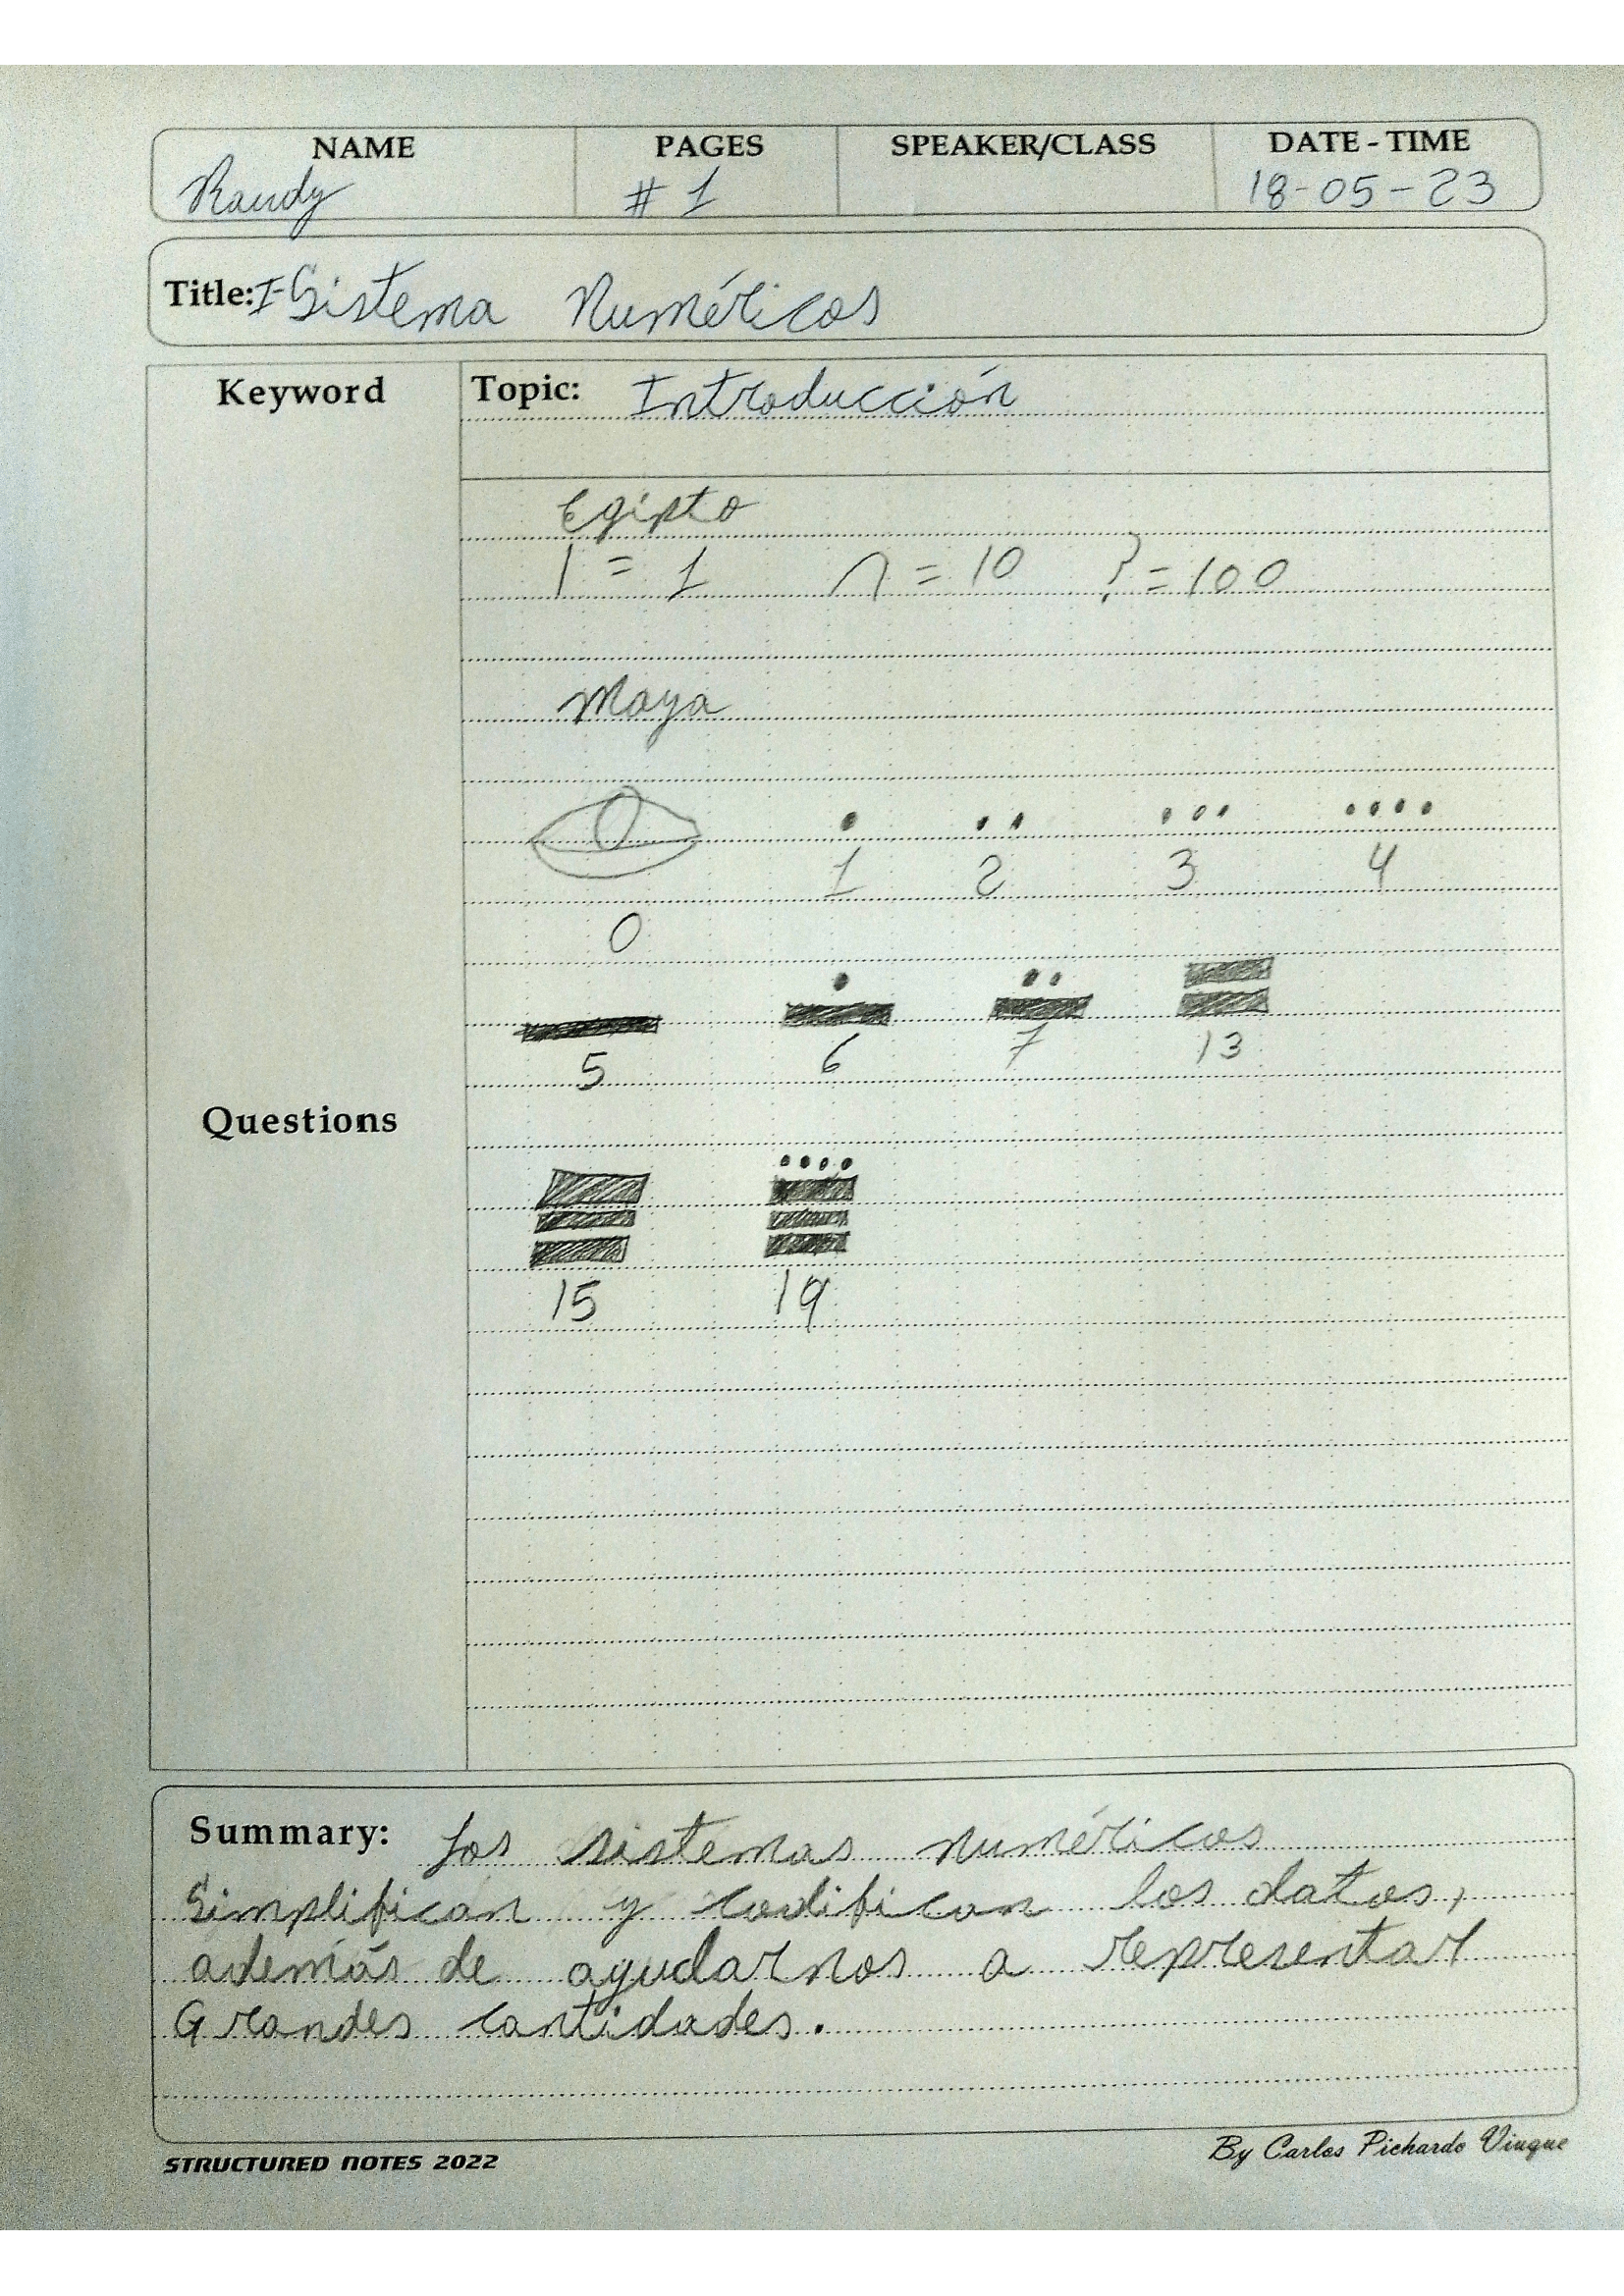 NAME PAGES SPEAKER/CLASS DATE - TIME
Randy # 1 18-05-23
Title: I-Sistema Numéricos
Keyword Topic: Introducción
Egipto
| = 1 ∩ = 10 ? = 100
Maya
1 2 3 4
0
5 6 7 13
Questions
15 19
Summary: Los sistemas numéricos
Simplifican y codifican los datos,
además de ayudarnos a representar
Grandes cantidades.
STRUCTURED NOTES 2022 By Carlos Pichardo Viuque